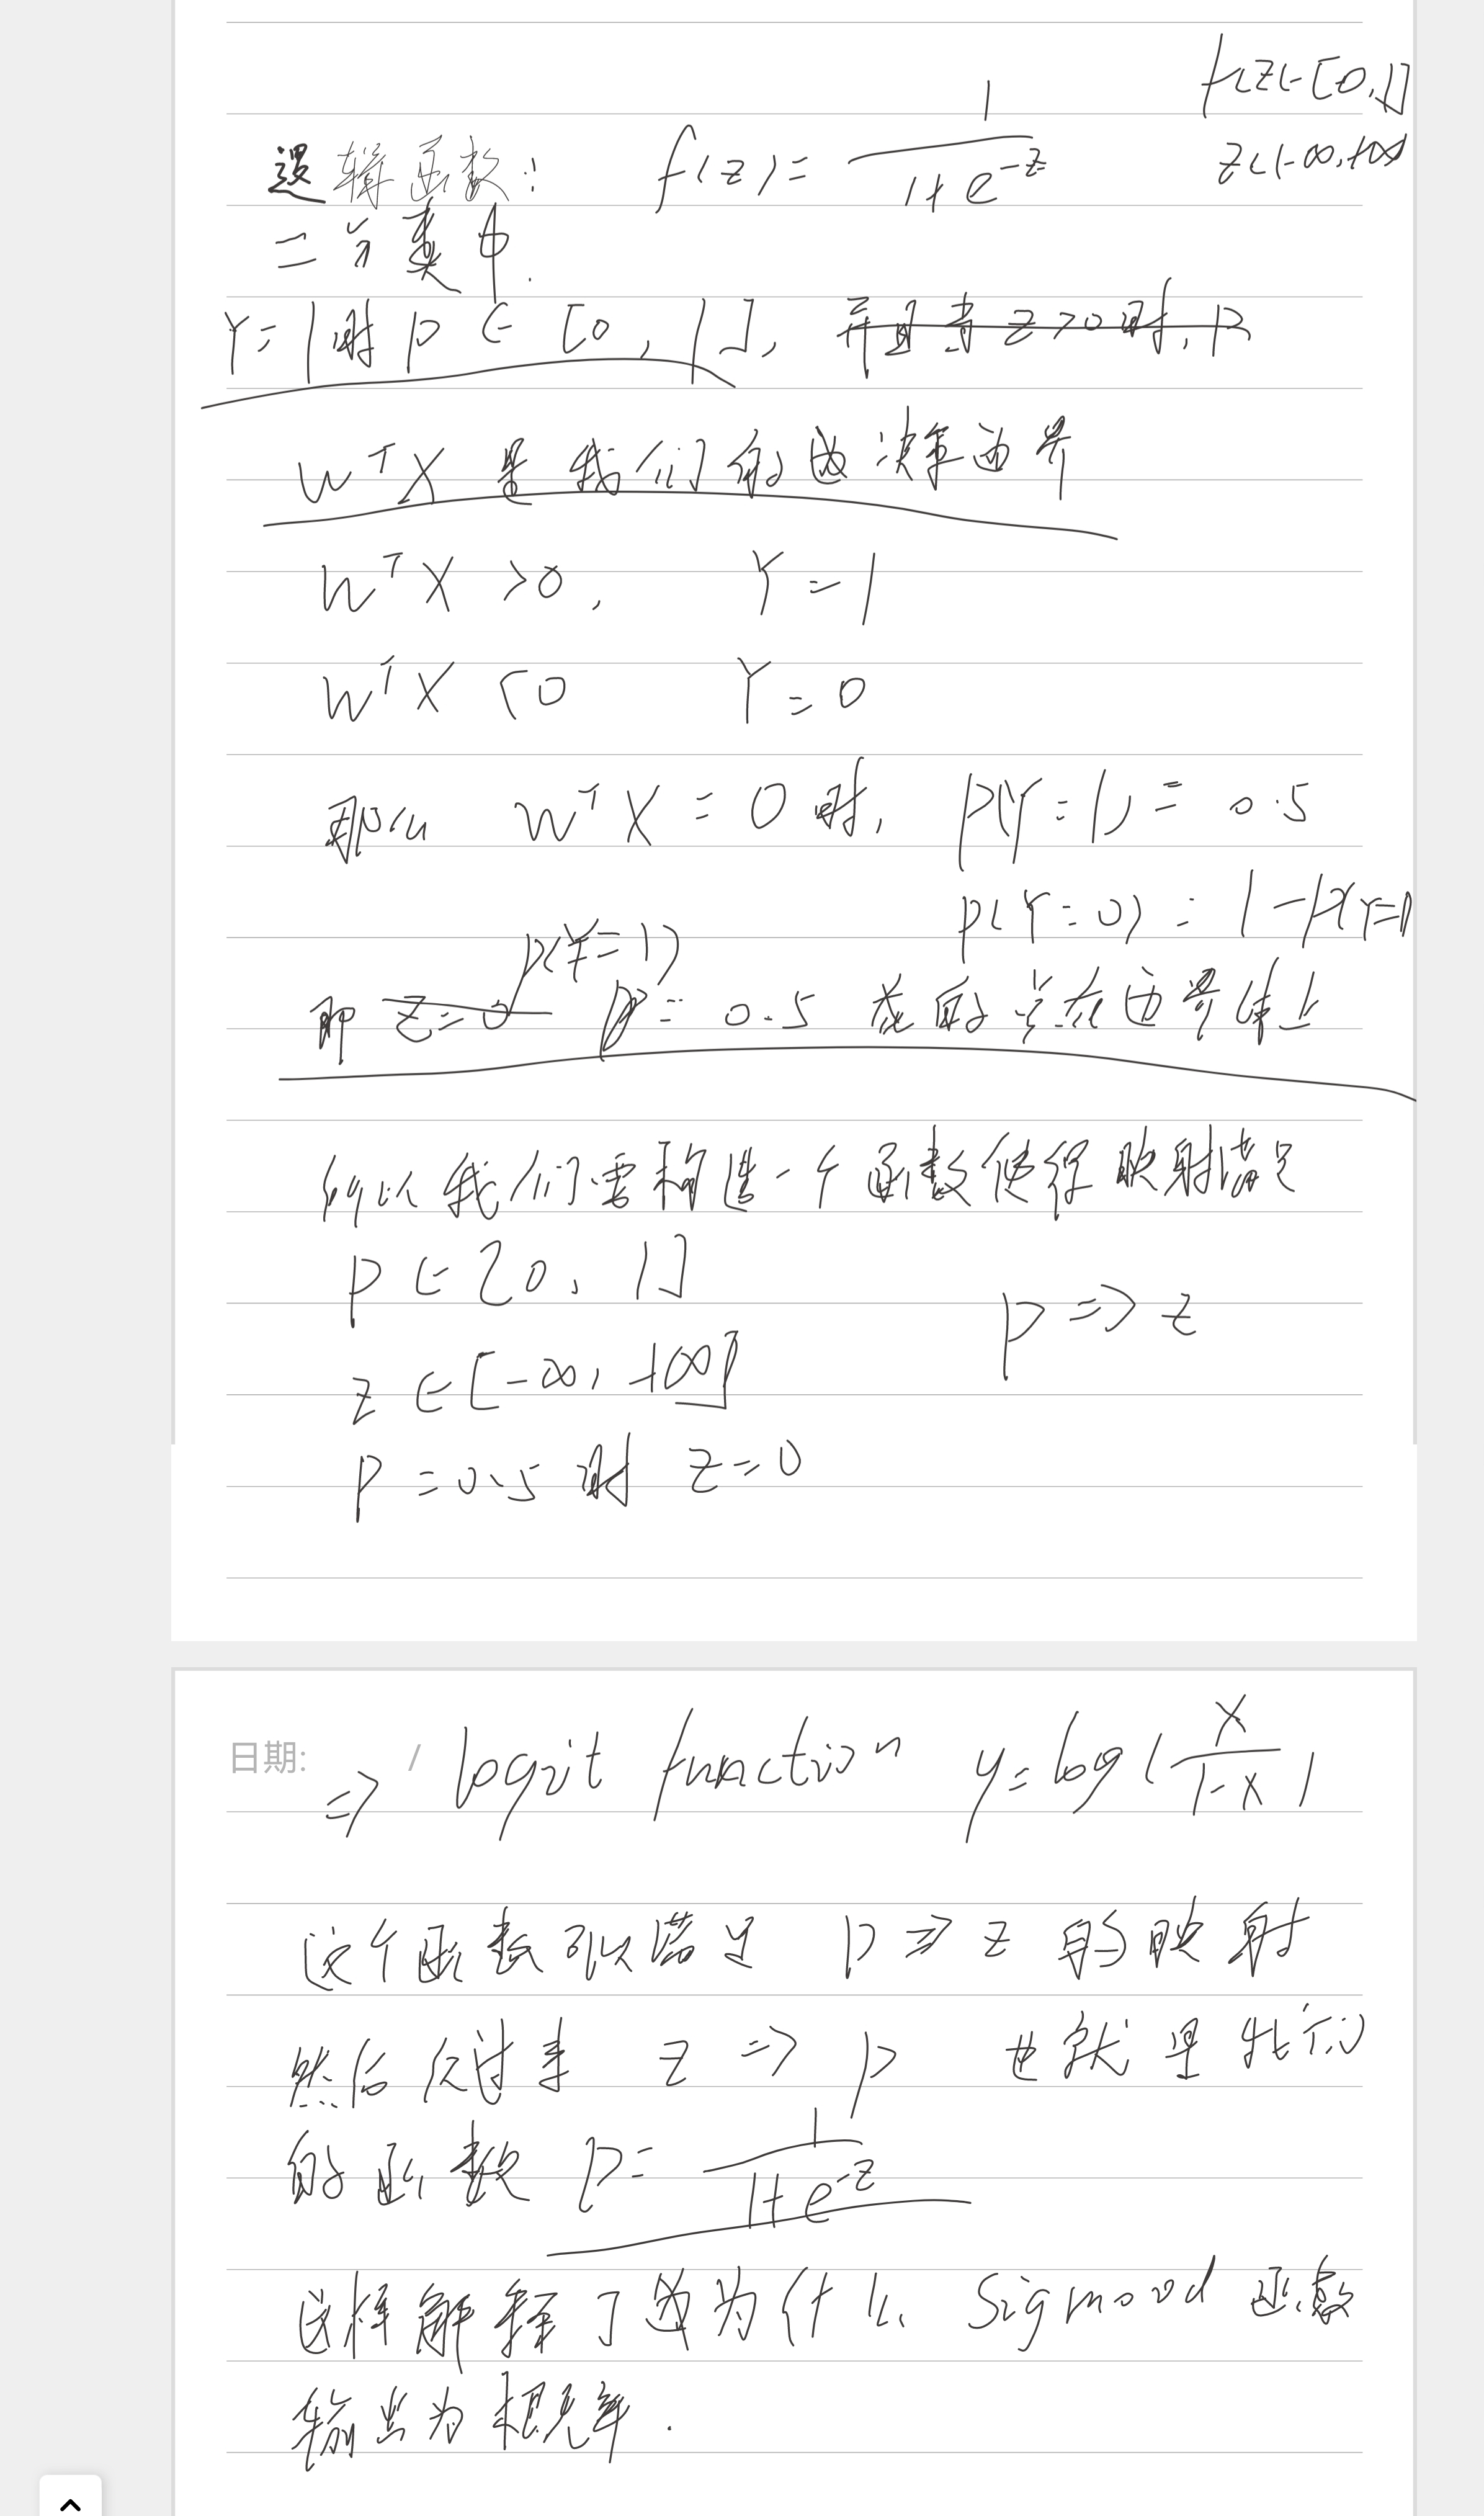 f(z)∈[0,1]
逻辑函数: f(z) = 1/(1+e^-z) z∈(-∞,+∞)
二分类中.
Y=1时 P∈[0,1],
W^T X 是我们的边决策边界
W^T X >0, Y=1
W^T X <0 Y=0
W^T X = 0时, P(Y=1) = 0.5
P(Y=0) = 1-P(Y=1)
即 P(Y=1) = 0.5 在的点在边界线上
所以我们需构造一个函数使得映射满足
P∈[0, 1]
P ⇒ z
z∈[-∞, +∞]
P=0.5时 z=0
日期: /
⇒ logit function y=log(x/(1-x))
这个函数可以满足 P⇒z 的映射
然后反过来 z⇒P 也就是我们
的函数 P= 1/(1+e^-z)
这样解释了为什么 Sigmoid 函数
输出为概率.